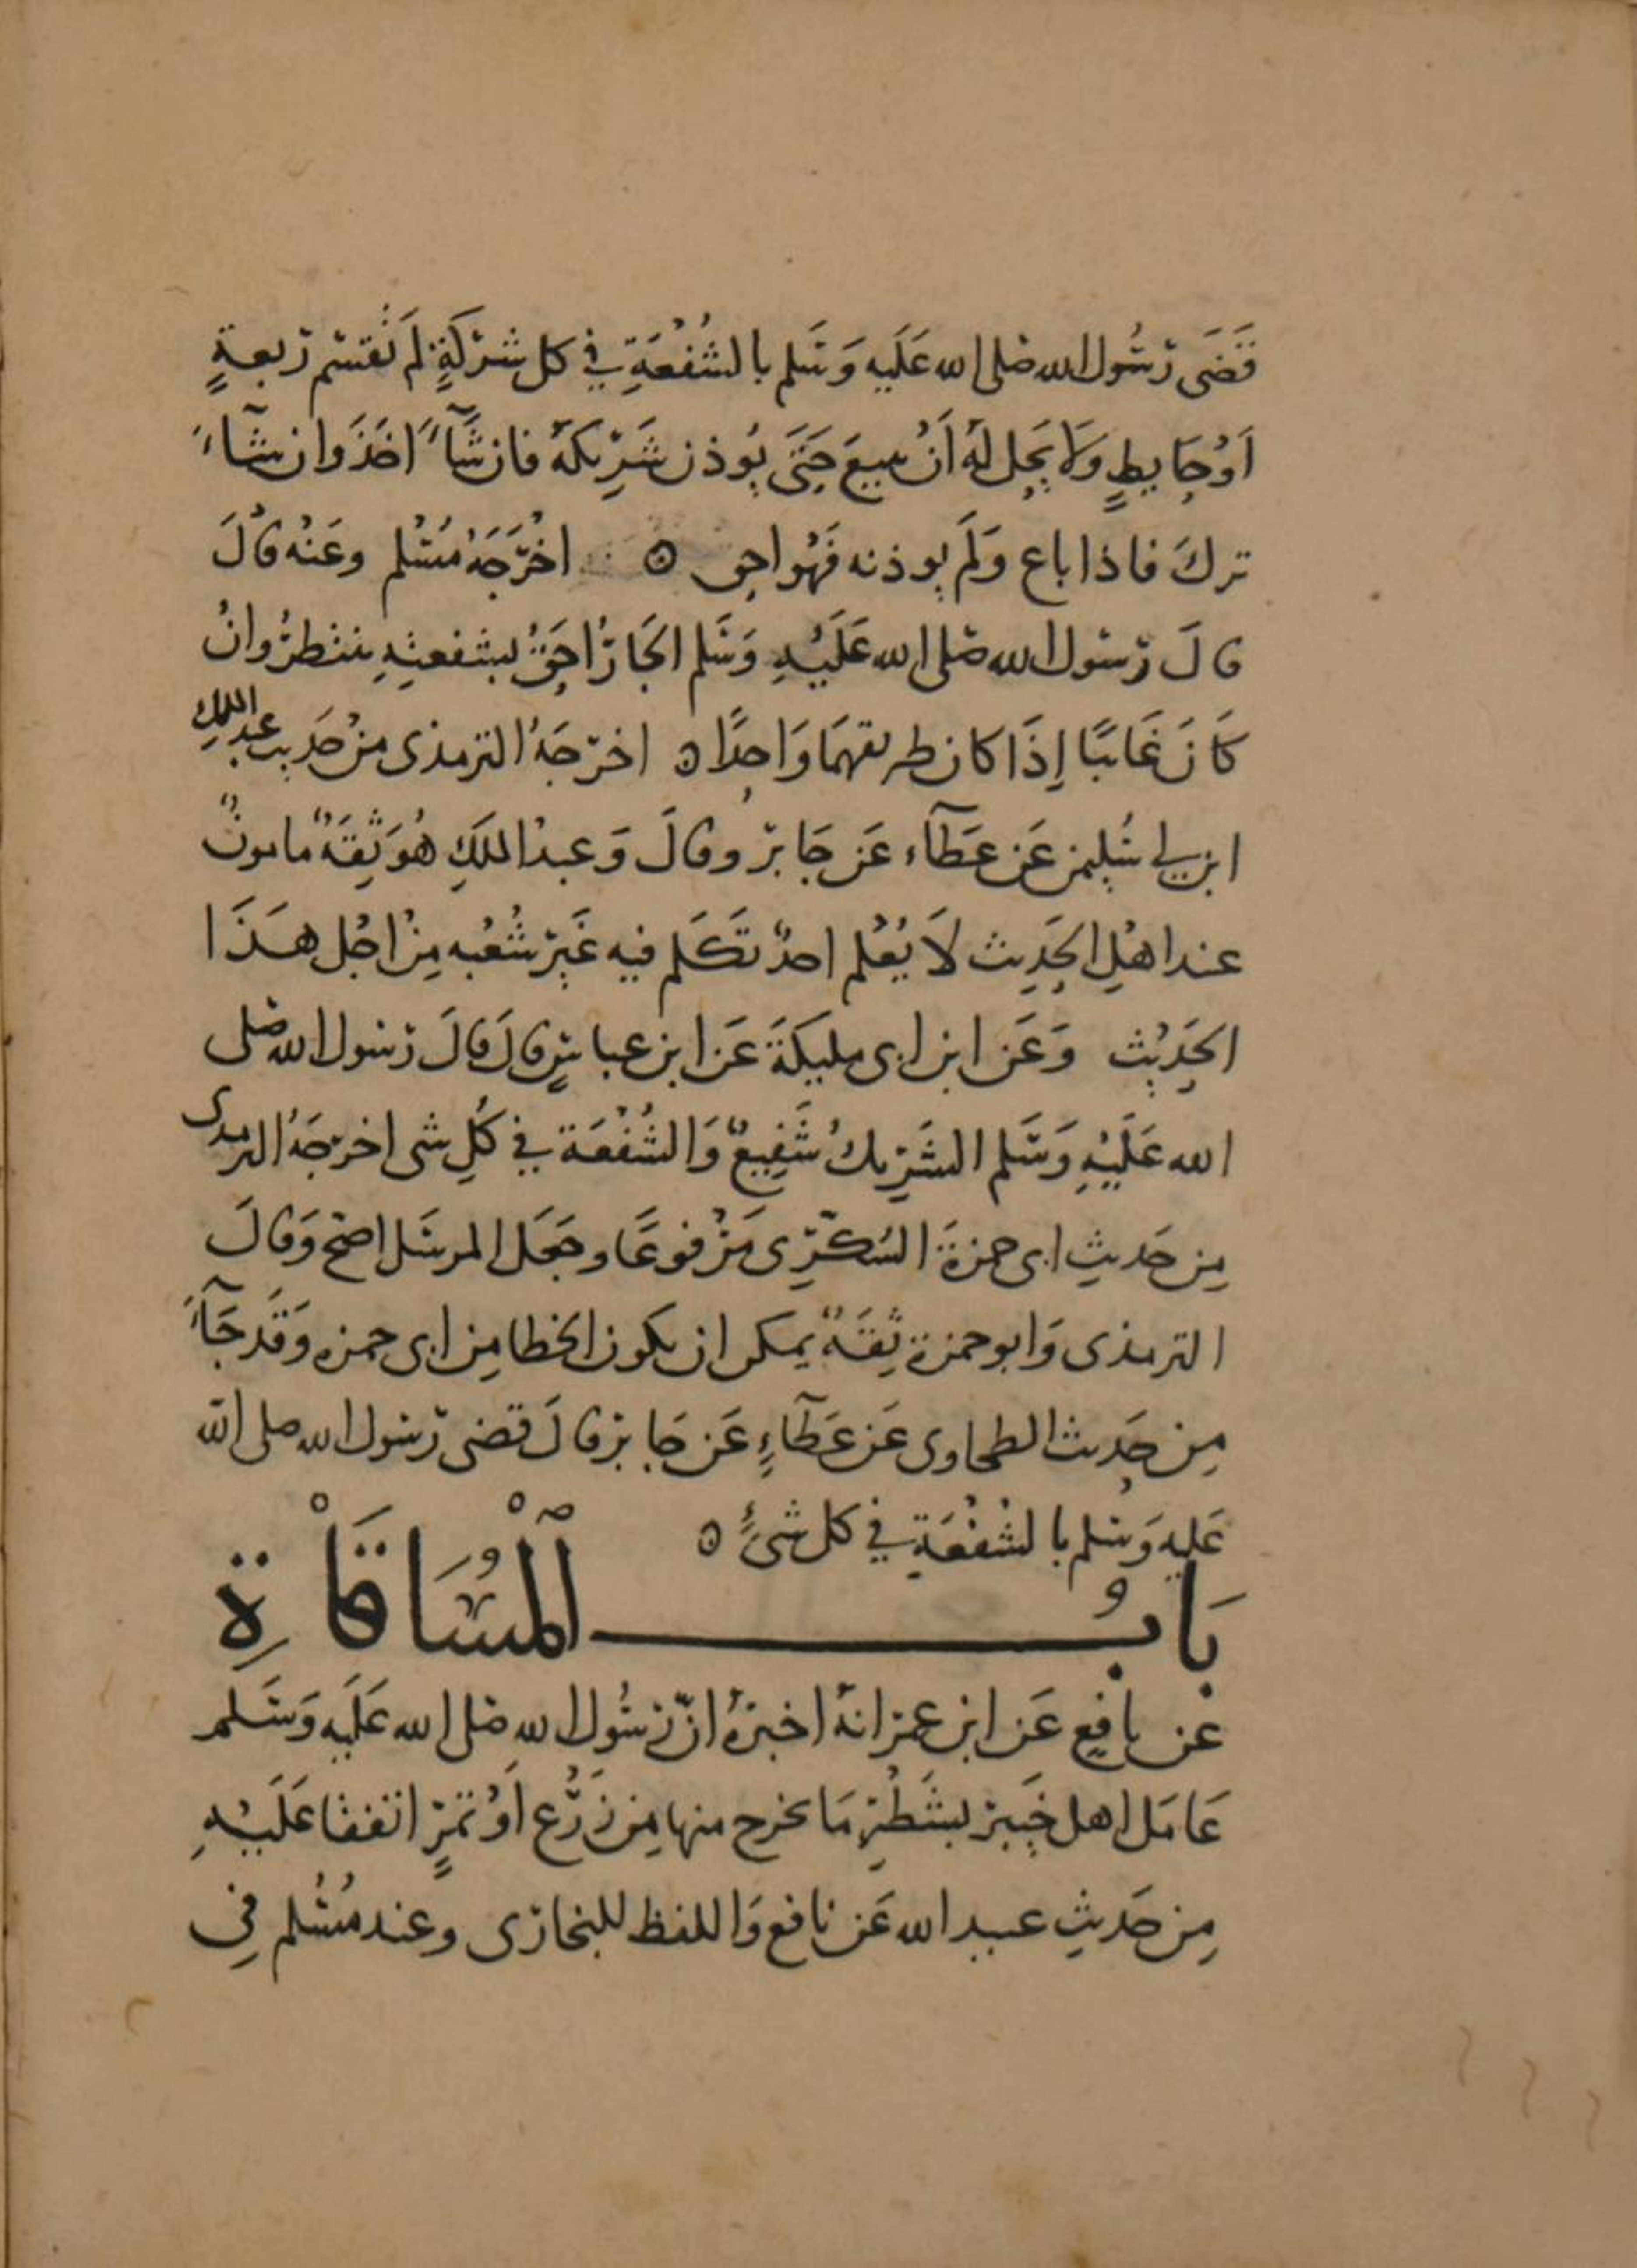 قَضَى رسُول الله صلى الله عَلَيه وَسَلم بالشُفْعَةِ في كل شركَةٍ لمَ تُقتسم ربعةٍ
اَوْ حَايطٍ وَلَا يَحِل لهُ اَنْ يبيعَ حَتَى يُوذن شَرِيكَهُ فان شَآءَ اخَذَ وان شآءَ
تركَ فاذا باع وَلَم يوذنه فَهُو احق ⊙ اخْرَجَهُ مُسْلم وعَنْه قالَ
قالَ رسول الله صلى الله عَلَيْهِ وَسَلم الجَارُ احَقُ بشفعتِهِ ينتظرُ وانْ
كَانَ غَائبًا اِذَا كان طريقهمَا وَاحِدًا ه اخرجَهُ الترمذى منْ حَديث عبد الملكِ
ابن ابي سُليمن عَن عَطَآء عَن جَابر وقالَ وَعبدْ الملكِ هُوَ ثِقَةٌ مامونٌ
عند اهْلِ الحَدِيث لَا يُعْلم احدٌ تَكَلم فيه غَير شُعْبه مِنْ اجْل هَذَا
الحَدِيْث وَعَن ابن ابى مليكَةَ عَن ابن عباسٍ قالَ قالَ رسول الله صلى
الله عَلَيْهِ وَسَلم الشَرِيكُ شَفِيعٌ وَالشُفْعَة في كُلِ شى اخرجَهُ الترمدى
مِن حَديثِ ابى حمزةَ السُكَّرِى مَرْفوعًا وجَعَل المرسَل اصَح وَقالَ
الترمذى وَابو حمزة ثِقَةٌ يمكن ان يكون الخطا مِن ابى حمزه وَقَد جَآءَ
مِن حَديث الطحاوى عَن عَطَآءٍ عَن جَابر قالَ قضى رسول الله صلى الله
عَليه وَسْلم بالشُفْعَةِ في كل شىءٍ ه
بَابُ الْمُسَاقَاْةِ
عَن نافِع عَن ابن عمر انهُ اخبرهُ انّ رسُول الله صَلى الله عَلَيه وَسَلم
عَامَل اهل خَيبر بشَطْرِ مَا يخرج منها مِن زَرْع اَوْ ثَمَرٍ اتفقا عَلَيْهِ
مِن حَديثِ عبيد الله عَن نافع وَاللفظ للبخارى وعند مُسْلم فِي